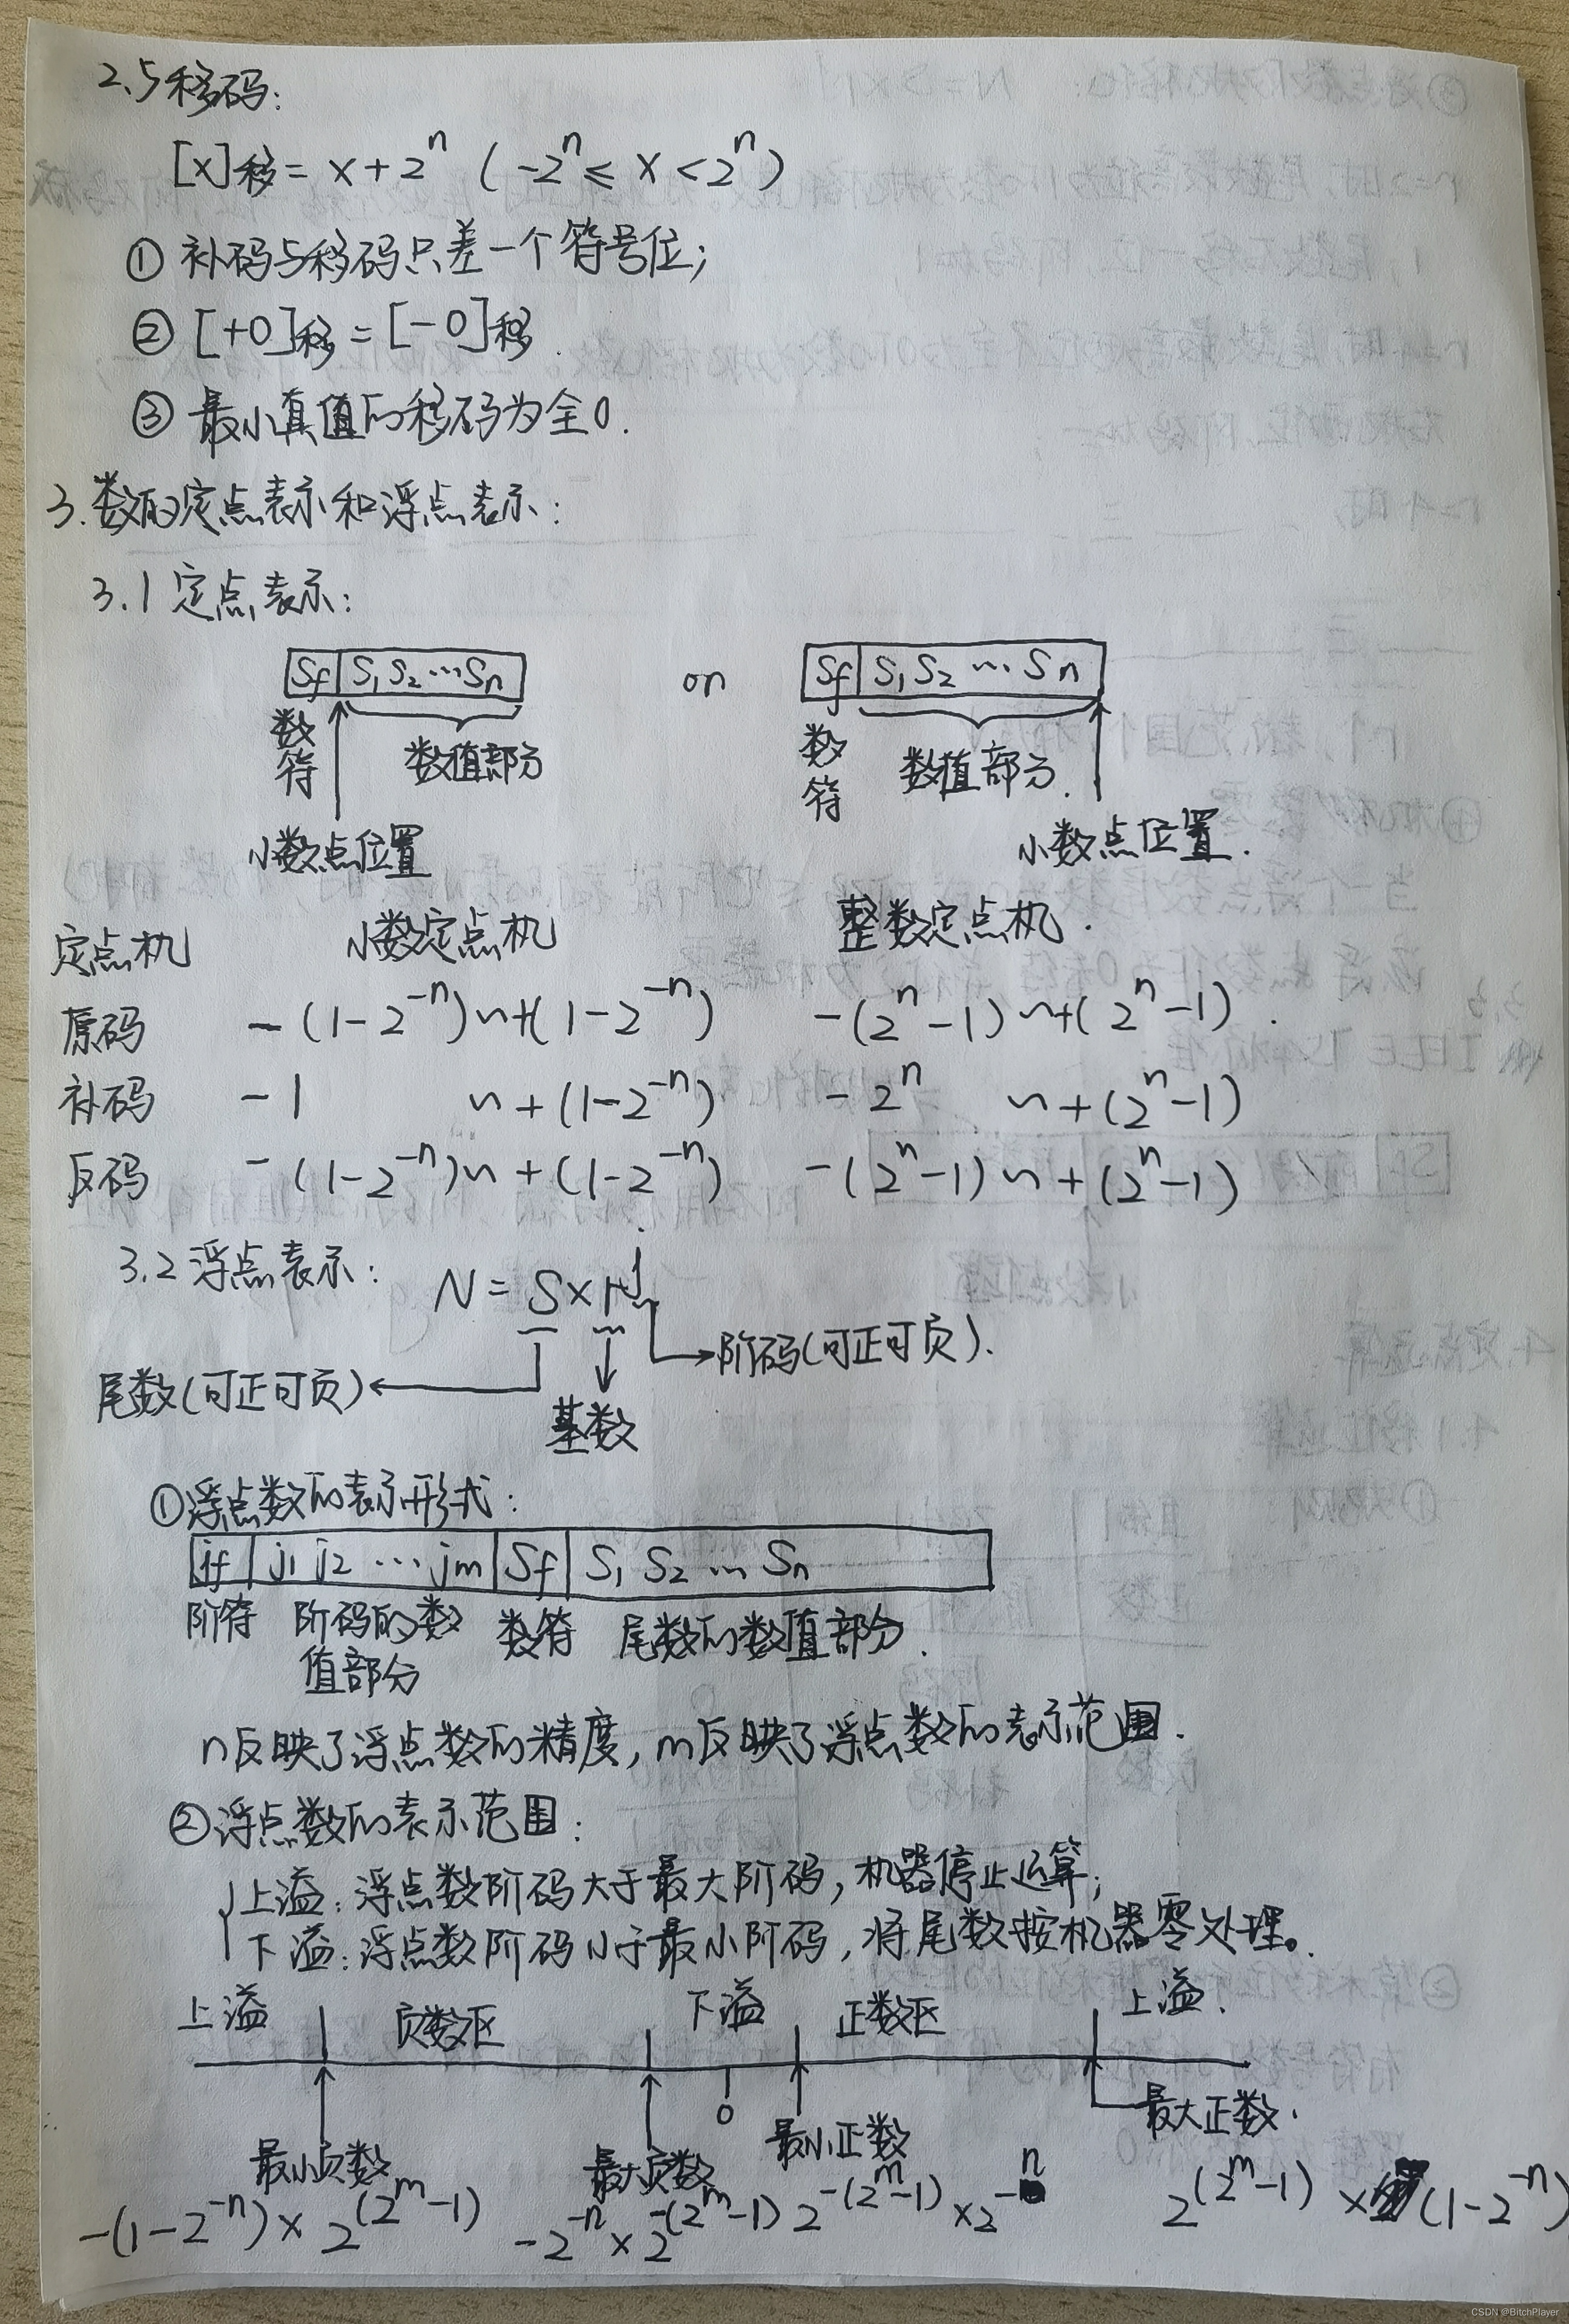 2.5移码:
[x]移 = x + 2^n ( -2^n ≤ x < 2^n )
① 补码与移码只差一个符号位;
② [+0]移 = [-0]移.
③ 最小真值的移码为全0.
3.数的定点表示和浮点表示:
3.1 定点表示:
Sf S₁ S₂ … Sn or Sf S₁ S₂ … Sn
数符 数值部分 数符 数值部分.
小数点位置 小数点位置.
定点机 小数定点机 整数定点机.
原码 -(1-2^-n) ~ +(1-2^-n) -(2^n-1) ~ +(2^n-1).
补码 -1 ~ +(1-2^-n) -2^n ~ +(2^n-1)
反码 -(1-2^-n) ~ +(1-2^-n) -(2^n-1) ~ +(2^n-1)
3.2 浮点表示: N = S × r^j
阶码(可正可负).
尾数(可正可负)
基数
①浮点数的表示形式:
jf j₁ j₂ … jm Sf S₁ S₂ … Sn
阶符 阶码的数 数符 尾数的数值部分.
值部分
n反映了浮点数的精度, m反映了浮点数的表示范围.
②浮点数的表示范围:
上溢: 浮点数阶码大于最大阶码, 机器停止运算;
下溢: 浮点数阶码小于最小阶码, 将尾数按机器零处理。
上溢 负数区 下溢 正数区 上溢.
0 最大正数.
最小负数 最大负数 最小正数
-(1-2^-n) × 2^(2^m-1) -2^-n × 2^-(2^m-1) 2^-(2^m-1) × 2^-n 2^(2^m-1) × (1-2^-n)
CSDN @BitchPlayer